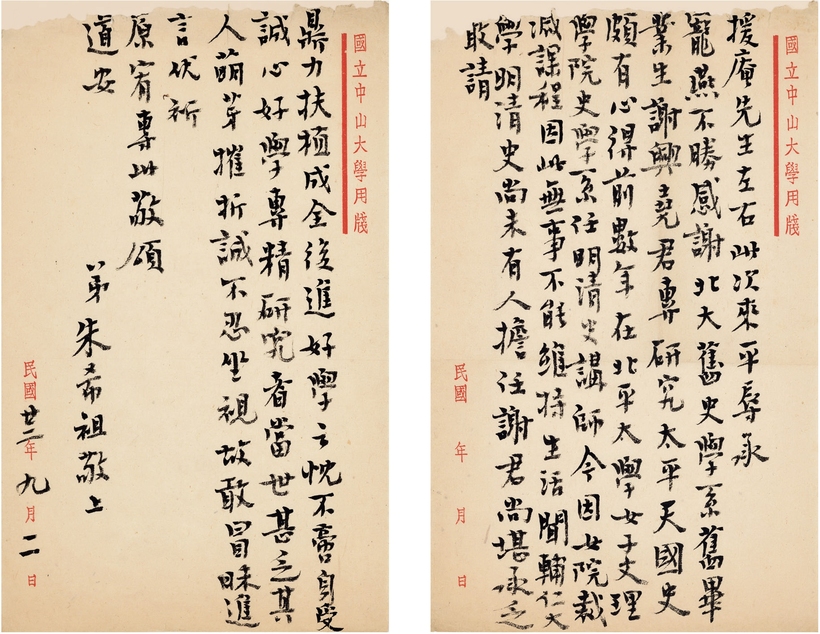 國立中山大學用牋
援庵先生左右此次來平辱承
寵燕不勝感謝北大舊史學系舊畢
業生謝興堯君專研究太平天國史
頗有心得前數年在北平大學女子文理
學院史學系任明清史講師今因女院裁
減課程因此無事不能維持生活聞輔仁大
學明清史尚未有人擔任謝君尚堪承乏
敢請
民國 年 月 日
國立中山大學用牋
鼎力扶植成全後進好學之忱不啻身受
誠心好學專精研究者當世甚乏其
人萌芽摧折誠不忍坐視故敢冒昧進
言伏祈
原宥專此敬頌
道安
弟朱希祖敬上
民國廿二年九月二日